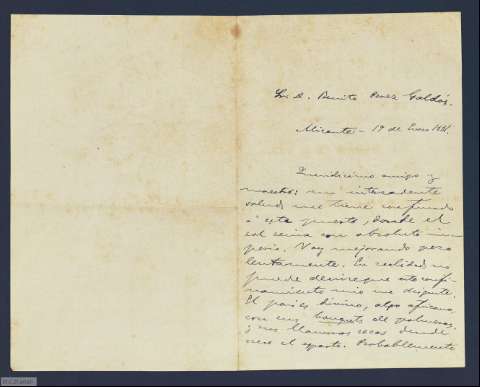 Sr. D. Benito Perez Galdós.
Alicante - 19 de Enero
Queridísimo amigo y
maestro: mi
salud me tiene confinado
á este puesto, donde el
sol reina con absoluto im
perio. Voy mejorando pero
lentamente. En realidad no
puede decirse que este confi
namiento mio me disguste.
El país es divino, algo africano,
con sus bouquets de palmeras
y sus llanuras secas donde
crece el esparto. Probablemente